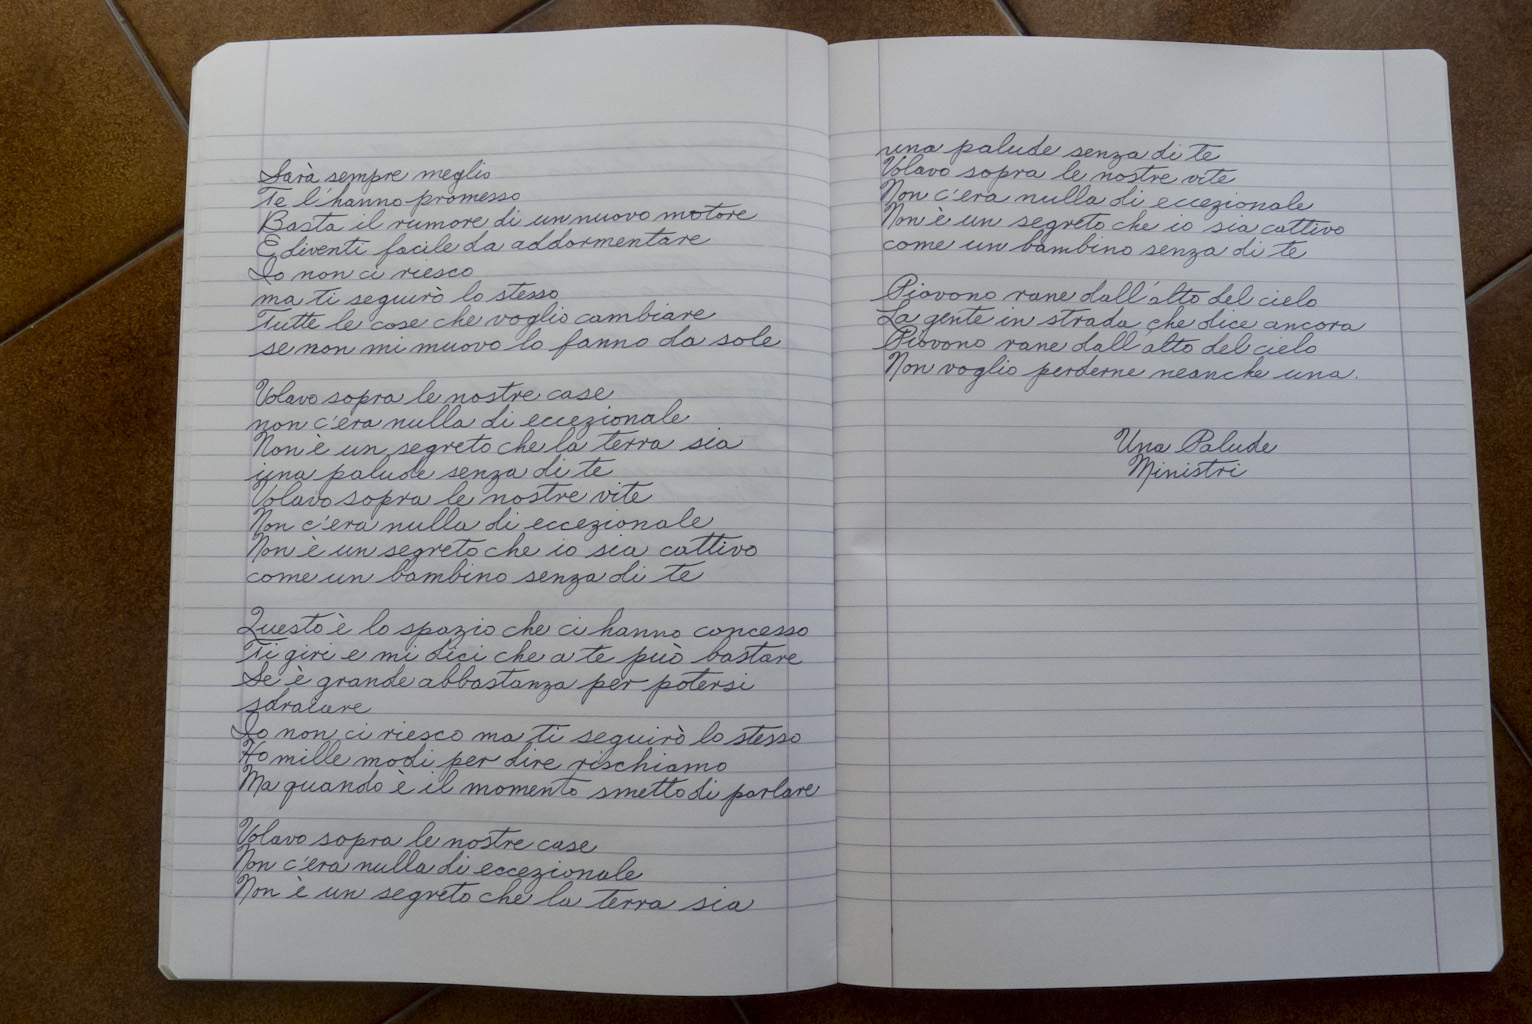 Sarà sempre meglio
Te l'hanno promesso
Basta il rumore di un nuovo motore
E diventi facile da addormentare
Io non ci riesco
ma ti seguirò lo stesso
Tutte le cose che voglio cambiare
se non mi muovo lo fanno da sole
Volavo sopra le nostre case
non c'era nulla di eccezionale
Non è un segreto che la terra sia
una palude senza di te
Volavo sopra le nostre vite
Non c'era nulla di eccezionale
Non è un segreto che io sia cattivo
come un bambino senza di te
Questo è lo spazio che ci hanno concesso
Ti giri e mi dici che a te può bastare
Se è grande abbastanza per potersi
sdraiare
Io non ci riesco ma ti seguirò lo stesso
Ho mille modi per dire rischiamo
Ma quando è il momento smetto di parlare
Volavo sopra le nostre case
Non c'era nulla di eccezionale
Non è un segreto che la terra sia
una palude senza di te
Volavo sopra le nostre vite
Non c'era nulla di eccezionale
Non è un segreto che io sia cattivo
come un bambino senza di te
Piovono rane dall'alto del cielo
La gente in strada che dice ancora
Piovono rane dall'alto del cielo
Non voglio perderne neanche una.
Una Palude
Ministri